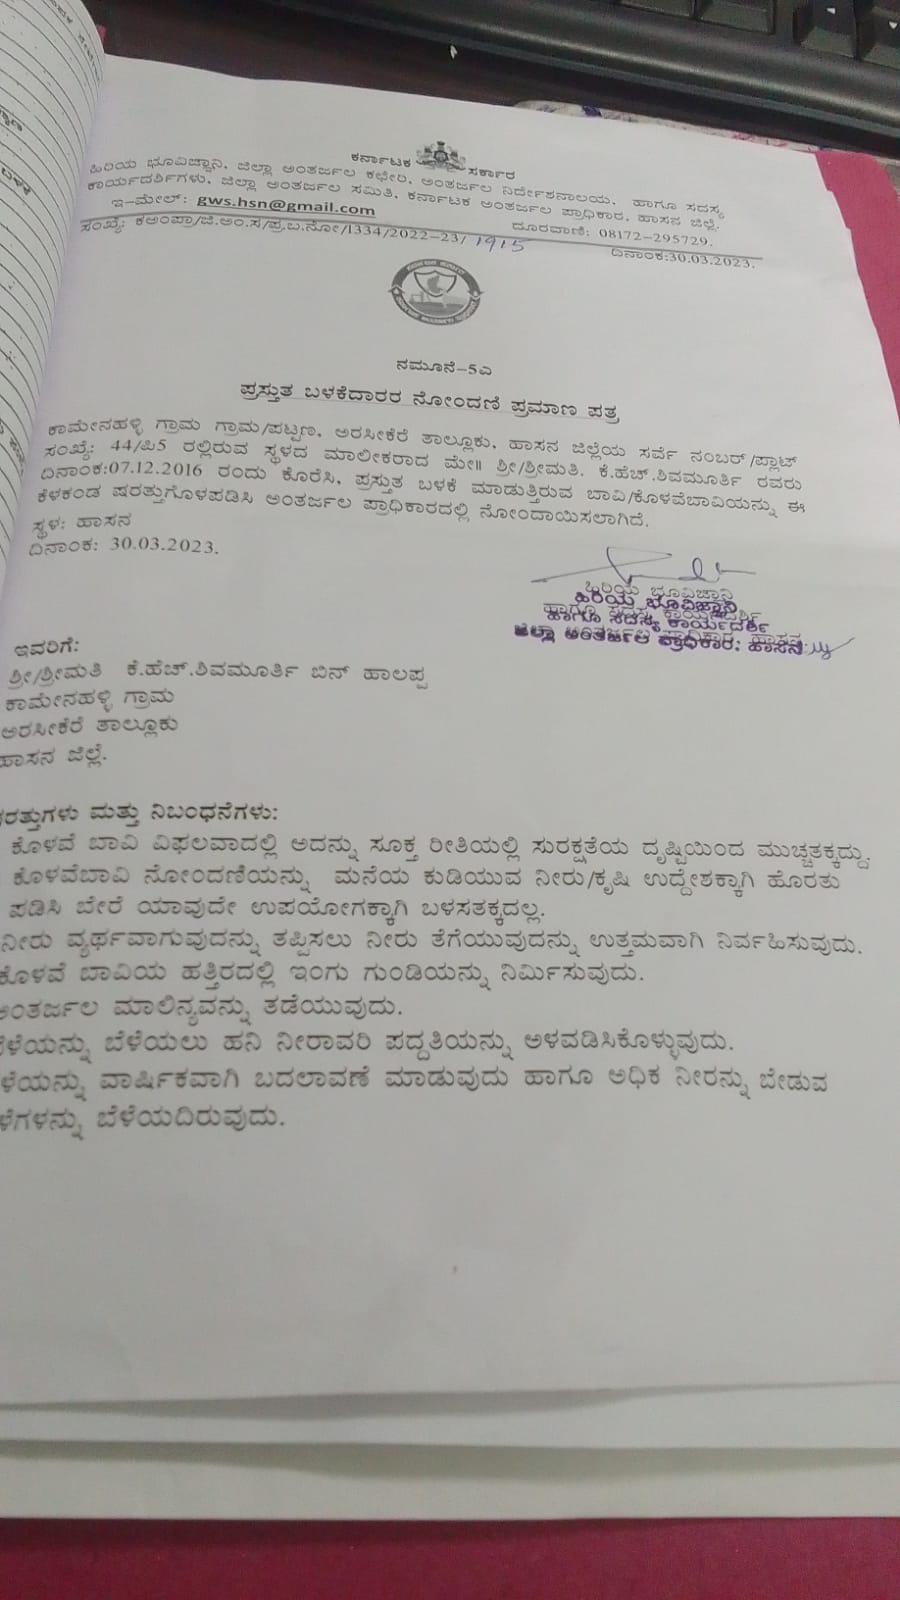 ಕರ್ನಾಟಕ ಸರ್ಕಾರ
ಹಿರಿಯ ಭೂವಿಜ್ಞಾನಿ, ಜಿಲ್ಲಾ ಅಂತರ್ಜಲ ಕಛೇರಿ, ಅಂತರ್ಜಲ ನಿರ್ದೇಶನಾಲಯ, ಹಾಗೂ ಸದಸ್ಯ
ಕಾರ್ಯದರ್ಶಿಗಳು, ಜಿಲ್ಲಾ ಅಂತರ್ಜಲ ಸಮಿತಿ, ಕರ್ನಾಟಕ ಅಂತರ್ಜಲ ಪ್ರಾಧಿಕಾರ, ಹಾಸನ ಜಿಲ್ಲೆ.
ಇ-ಮೇಲ್: gws.hsn@gmail.com ದೂರವಾಣಿ: 08172-295729.
ಸಂಖ್ಯೆ: ಕಅಂಪ್ರಾ/ಜಿ.ಅಂ.ಸ/ಪ್ರ.ಬ.ನೋ/1334/2022-23/1915 ದಿನಾಂಕ:30.03.2023.
ನಮೂನೆ-5ಎ
ಪ್ರಸ್ತುತ ಬಳಕೆದಾರರ ನೋಂದಣಿ ಪ್ರಮಾಣ ಪತ್ರ
ಕಾಮೇನಹಳ್ಳಿ ಗ್ರಾಮ ಗ್ರಾಮ/ಪಟ್ಟಣ, ಅರಸೀಕೆರೆ ತಾಲ್ಲೂಕು, ಹಾಸನ ಜಿಲ್ಲೆಯ ಸರ್ವೆ ನಂಬರ್/ಪ್ಲಾಟ್
ಸಂಖ್ಯೆ: 44/ಪಿ5 ರಲ್ಲಿರುವ ಸ್ಥಳದ ಮಾಲೀಕರಾದ ಮೇ॥ ಶ್ರೀ/ಶ್ರೀಮತಿ. ಕೆ.ಹೆಚ್.ಶಿವಮೂರ್ತಿ ರವರು
ದಿನಾಂಕ:07.12.2016 ರಂದು ಕೊರೆಸಿ, ಪ್ರಸ್ತುತ ಬಳಕೆ ಮಾಡುತ್ತಿರುವ ಬಾವಿ/ಕೊಳವೆಬಾವಿಯನ್ನು ಈ
ಕೆಳಕಂಡ ಷರತ್ತುಗೊಳಪಡಿಸಿ ಅಂತರ್ಜಲ ಪ್ರಾಧಿಕಾರದಲ್ಲಿ ನೋಂದಾಯಿಸಲಾಗಿದೆ.
ಸ್ಥಳ: ಹಾಸನ
ದಿನಾಂಕ: 30.03.2023.
ಹಿರಿಯ ಭೂವಿಜ್ಞಾನಿ
ಹಾಗೂ ಸದಸ್ಯ ಕಾರ್ಯದರ್ಶಿ
ಜಿಲ್ಲಾ ಅಂತರ್ಜಲ ಪ್ರಾಧಿಕಾರ, ಹಾಸನ
ಇವರಿಗೆ:
ಶ್ರೀ/ಶ್ರೀಮತಿ ಕೆ.ಹೆಚ್.ಶಿವಮೂರ್ತಿ ಬಿನ್ ಹಾಲಪ್ಪ
ಕಾಮೇನಹಳ್ಳಿ ಗ್ರಾಮ
ಅರಸೀಕೆರೆ ತಾಲ್ಲೂಕು
ಹಾಸನ ಜಿಲ್ಲೆ.
ಷರತ್ತುಗಳು ಮತ್ತು ನಿಬಂಧನೆಗಳು:
ಕೊಳವೆ ಬಾವಿ ವಿಫಲವಾದಲ್ಲಿ ಅದನ್ನು ಸೂಕ್ತ ರೀತಿಯಲ್ಲಿ ಸುರಕ್ಷತೆಯ ದೃಷ್ಟಿಯಿಂದ ಮುಚ್ಚತಕ್ಕದ್ದು.
ಕೊಳವೆಬಾವಿ ನೋಂದಣಿಯನ್ನು ಮನೆಯ ಕುಡಿಯುವ ನೀರು/ಕೃಷಿ ಉದ್ದೇಶಕ್ಕಾಗಿ ಹೊರತು
ಪಡಿಸಿ ಬೇರೆ ಯಾವುದೇ ಉಪಯೋಗಕ್ಕಾಗಿ ಬಳಸತಕ್ಕದಲ್ಲ.
ನೀರು ವ್ಯರ್ಥವಾಗುವುದನ್ನು ತಪ್ಪಿಸಲು ನೀರು ತೆಗೆಯುವುದನ್ನು ಉತ್ತಮವಾಗಿ ನಿರ್ವಹಿಸುವುದು.
ಕೊಳವೆ ಬಾವಿಯ ಹತ್ತಿರದಲ್ಲಿ ಇಂಗು ಗುಂಡಿಯನ್ನು ನಿರ್ಮಿಸುವುದು.
ಅಂತರ್ಜಲ ಮಾಲಿನ್ಯವನ್ನು ತಡೆಯುವುದು.
ಬೆಳೆಯನ್ನು ಬೆಳೆಯಲು ಹನಿ ನೀರಾವರಿ ಪದ್ದತಿಯನ್ನು ಅಳವಡಿಸಿಕೊಳ್ಳುವುದು.
ಳೆಯನ್ನು ವಾರ್ಷಿಕವಾಗಿ ಬದಲಾವಣೆ ಮಾಡುವುದು ಹಾಗೂ ಅಧಿಕ ನೀರನ್ನು ಬೇಡುವ
ಳೆಗಳನ್ನು ಬೆಳೆಯದಿರುವುದು.